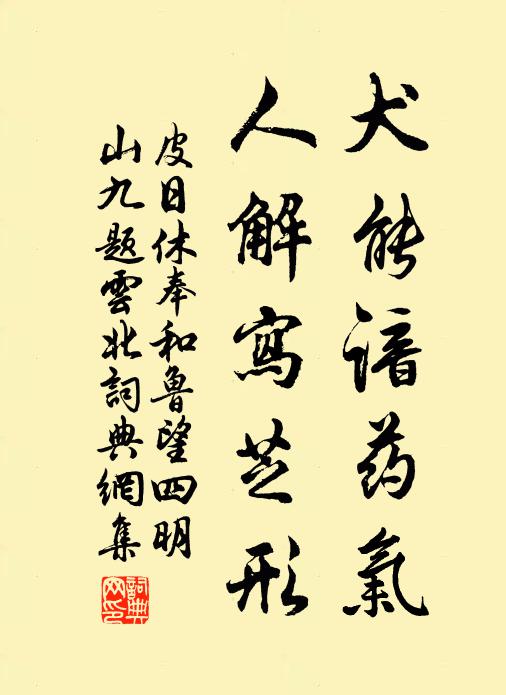 犬能諳药氣
人解寫芝形
皮日休奉和魯望四明
山九題雲北詞典網集
詞典网印